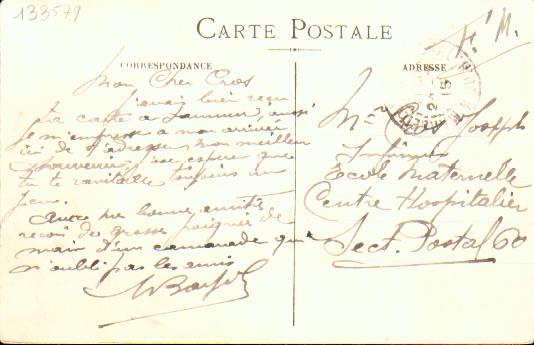 133579
CARTE POSTALE
F. M.
CORRESPONDANCE
ADRESSE
Mon Cher Cros
J'avais bien reçu
ta carte à Saumur, aussi
je m'empresse à mon arrivée
ici de t'adresser mon meilleur
souvenir, j'ose espérer que
tu te ravitaille toujours un
peu.
Avec ma bonne amitié
reçois de grosse poignée de
main d'un camarade qui
n'oubli pas les amis
Mr Joseph
Infirmier
Ecole Maternelle
Centre Hospitalier
Sect. Postal 60